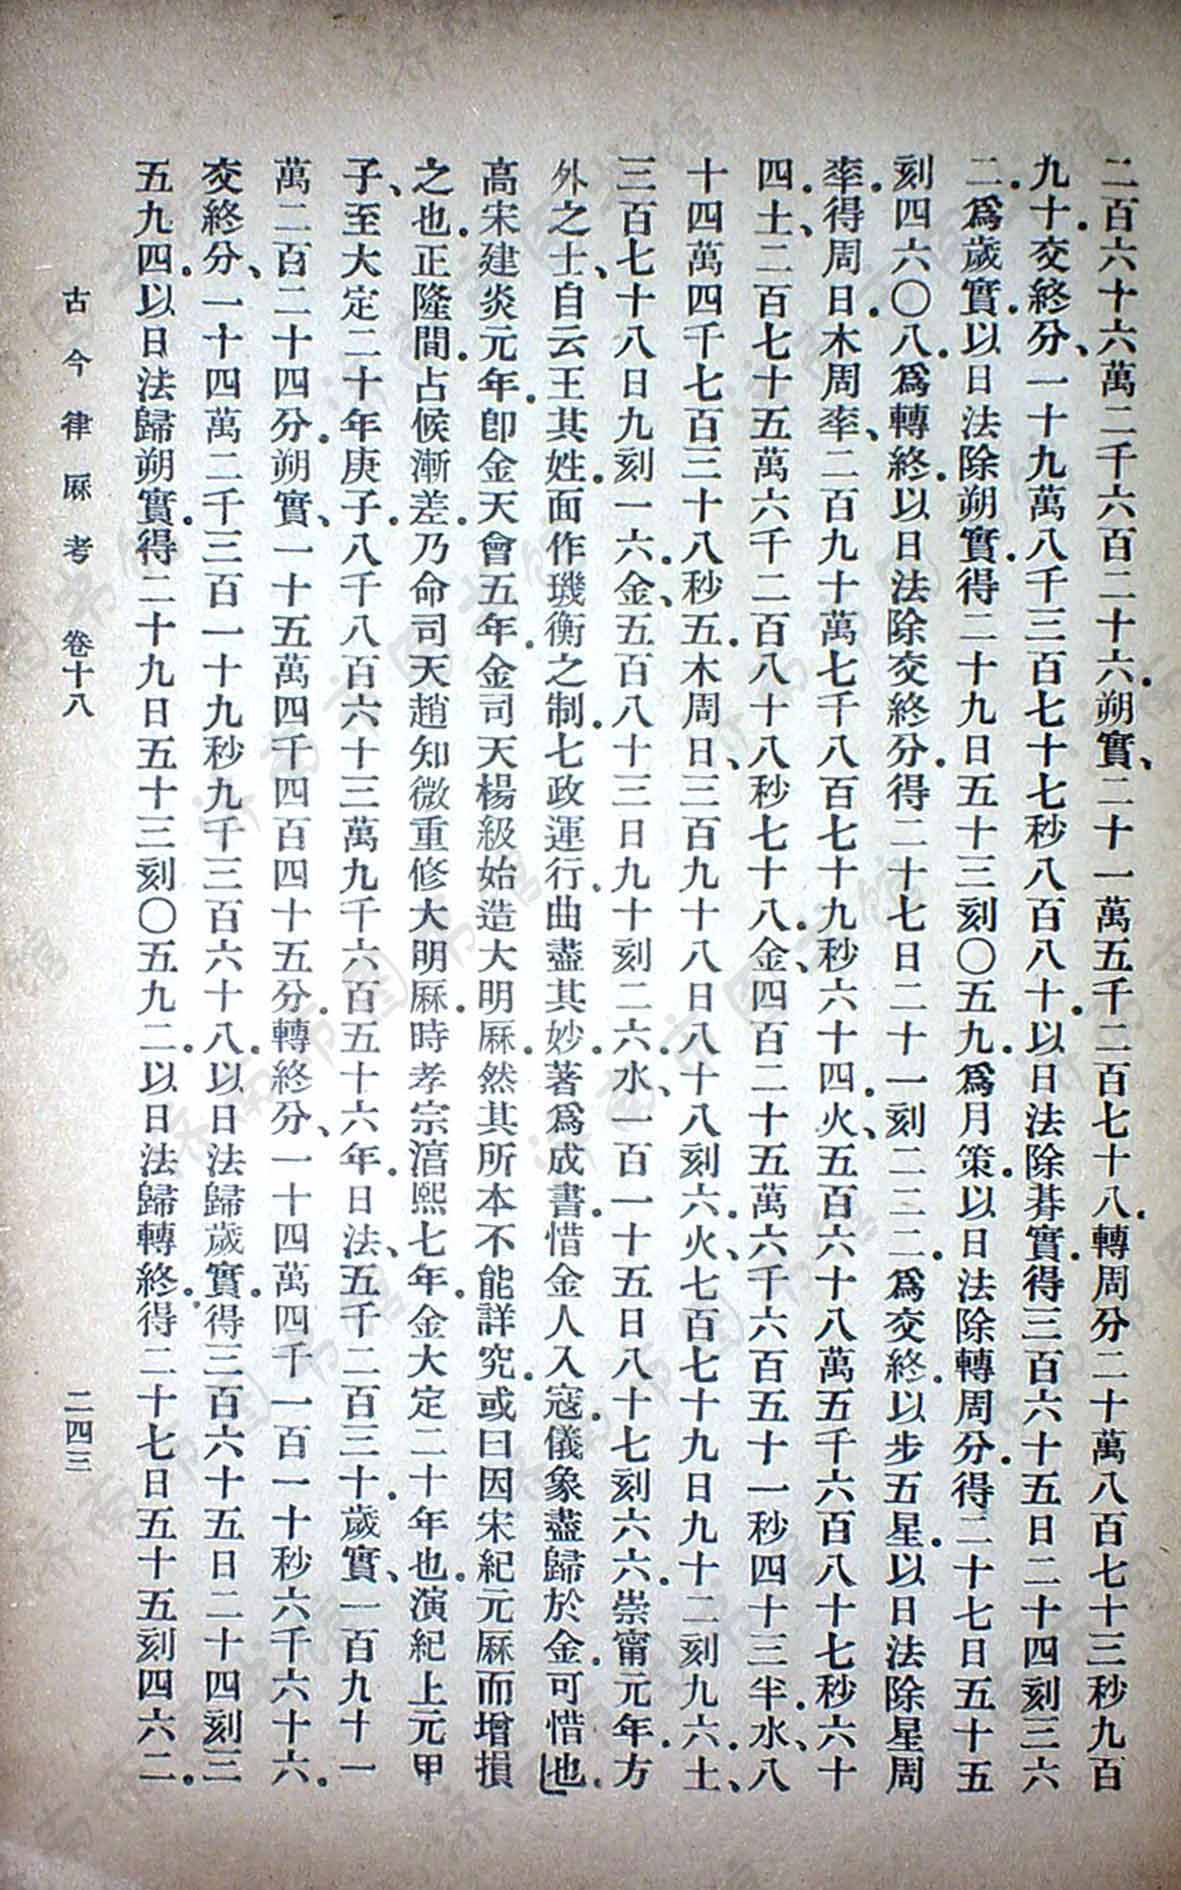 二百六十六萬二千六百二十六。朔實、二十一萬五千二百七十八。轉周分二十萬八百七十三秒九百
九十。交終分、一十九萬八千三百七十七秒八百八十。以日法除朞實。得三百六十五日二十四刻三六
二。爲歲實。以日法除朔實。得二十九日五十三刻〇五九。爲月策。以日法除轉周分。得二十七日五十五
刻四六〇八。爲轉終。以日法除交終分。得二十七日二十一刻二二二。爲交終。以步五星。以日法除星周
率。得周日。木周率、二百九十萬七千八百七十九秒六十四。火、五百六十八萬五千六百八十七秒六十
四。土、二百七十五萬六千二百八十八秒七十八。金、四百二十五萬六千六百五十一秒四十三半。水、八
十四萬四千七百三十八秒五。木周日、三百九十八日八十八刻六。火、七百七十九日九十二刻九六。土、
三百七十八日九刻一六。金、五百八十三日九十刻二六。水、一百一十五日八十七刻六六。崇甯元年。方
外之士、自云王其姓。面作璣衡之制。七政運行。曲盡其妙。著爲成書。惜金人入寇。儀象盡歸於金。可惜也。
高宋建炎元年。卽金天會五年。金司天楊級始造大明厤。然其所本不能詳究。或曰因宋紀元厤而增損
之也。正隆間。占候漸差。乃命司天趙知微重修大明厤。時孝宗淯熙七年。金大定二十年也。演紀上元甲
子、至大定二十年庚子。八千八百六十三萬九千六百五十六年。日法、五千二百三十。歲實、一百九十一
萬二百二十四分。朔實、一十五萬四千四百四十五分。轉終分、一十四萬四千一百一十秒六千六十六。
交終分、一十四萬二千三百一十九秒九千三百六十八。以日法歸歲實。得三百六十五日二十四刻三
五九四。以日法歸朔實。得二十九日五十三刻〇五九二。以日法歸轉終。得二十七日五十五刻四六二。
古今律厤考　卷十八　二四三